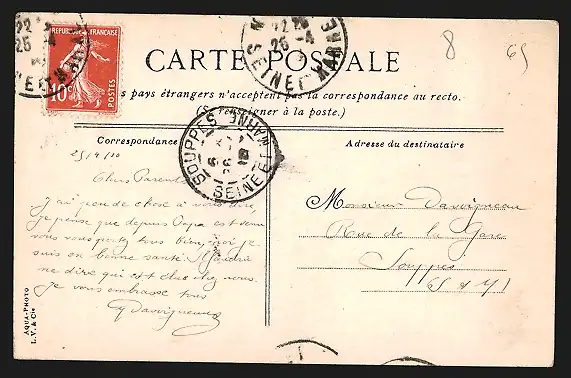 REPUBLIQUE FRANÇAISE
10c
POSTES
22
25 -4
CARTE POSTALE
8
65
pays étrangers n'acceptent pas la correspondance au recto.
(Se renseigner à la poste.)
Correspondance
Adresse du destinataire
SOUPPES
SEINE ET MARNE
25/4/10
Chers Parents
J'ai peu de chose à vous dire,
je pense que depuis Papa est venu
vous vous portez tous bien, moi je
suis en bonne santé
me dire qui est chez vous
Je vous embrasse tous
G Dauvigneau
Monsieur Dauvigneau
Rue de la Gare
Souppes
(S & M)
AQUA-PHOTO
L.V. & Cie